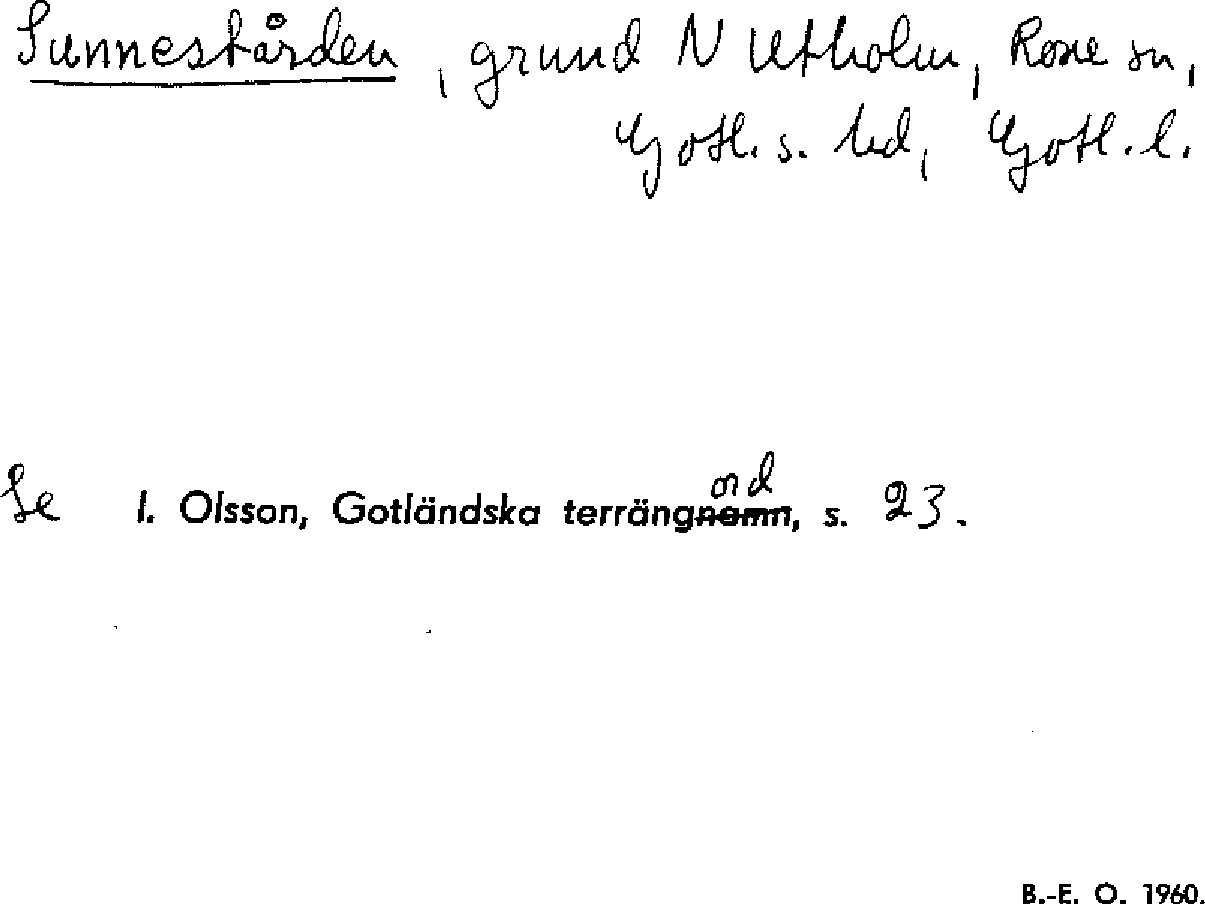 Sunneskården, grund N Utholm, Rone sn,
Gotl. s. hd, Gotl. l.
Se I. Olsson, Gotländska terrängnamn, s. 23.
ord
B.-E. O. 1960.